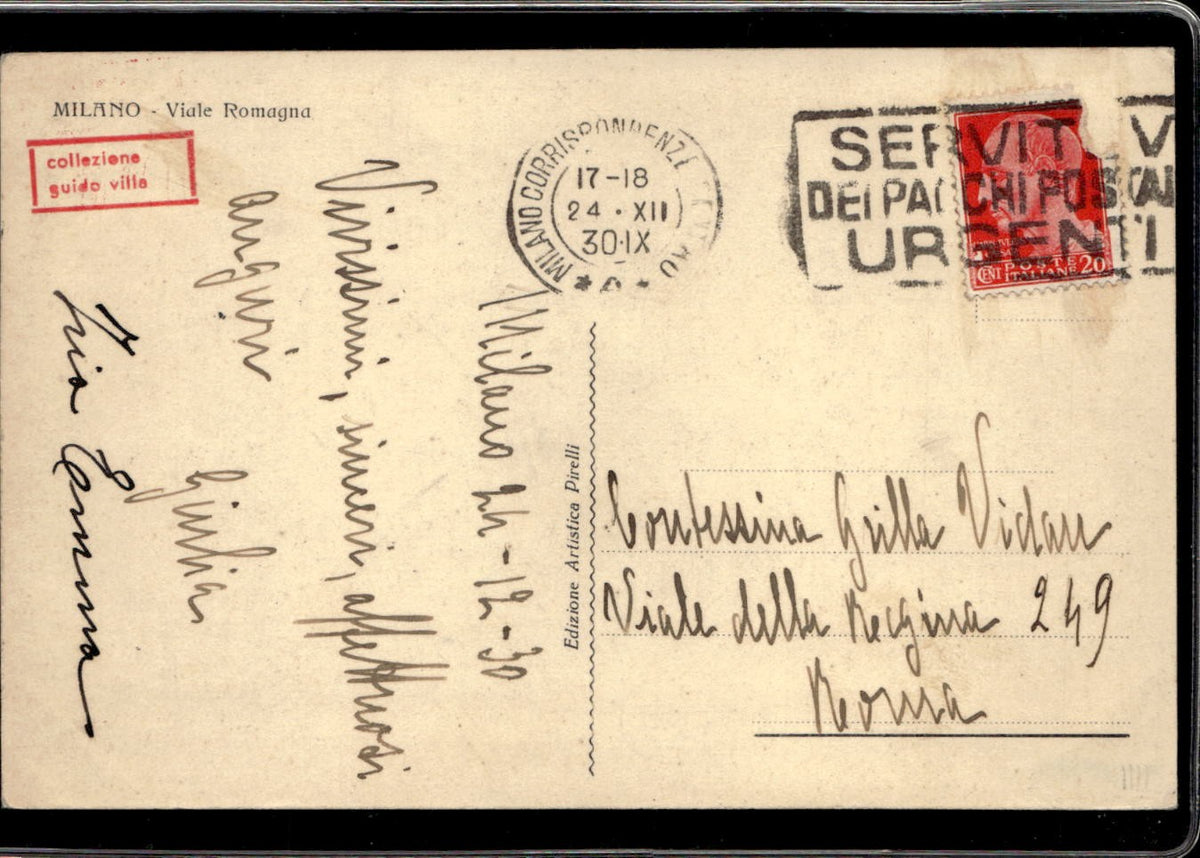 MILANO - Viale Romagna
collezione
guido villa
MILANO CORRISPONDENZE
17-18
24 · XII
30·IX
SERVIT V
DEI PACCHI POSTAL
URGENTI
POSTE
CENT ITALIANE 20
Milano 24-12-30
Vivissimi, sinceri, affettuosi
auguri
Giulia
Zia Emma
Edizione Artistica Pirelli
Contessina Grilla Vidau
Viale della Regina 249
Roma